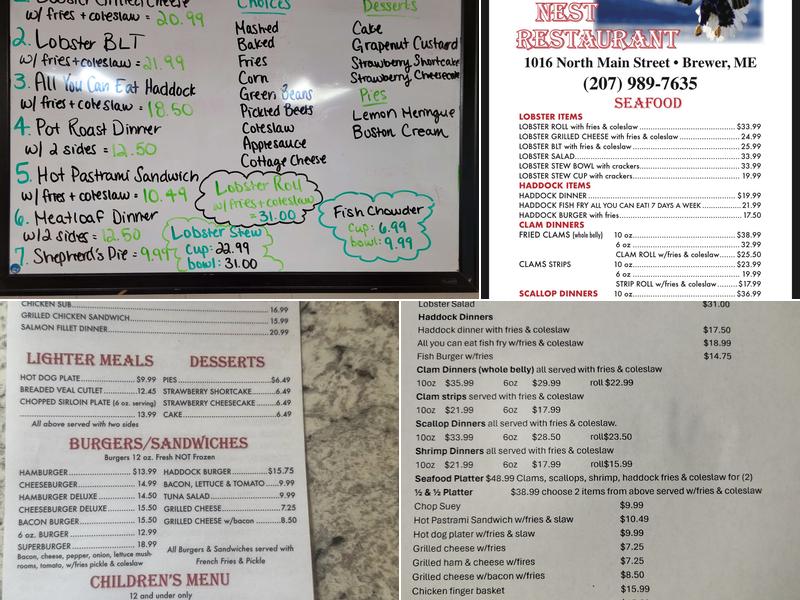 1. Lobster Grilled Cheese
w/ fries + coleslaw = 20.99
2. Lobster BLT
w/ fries + coleslaw = 21.99
3. All You Can Eat Haddock
w/ fries + coleslaw = 18.50
4. Pot Roast Dinner
w/ 2 sides = 12.50
5. Hot Pastrami Sandwich
w/ fries + coleslaw = 10.49
6. Meatloaf Dinner
w/ 2 sides = 12.50
7. Shepherd's Pie = 9.99
Choices
Mashed
Baked
Fries
Corn
Green Beans
Pickled Beets
Coleslaw
Applesauce
Cottage Cheese
Desserts
Cake
Grapenut Custard
Strawberry Shortcake
Strawberry Cheesecake
Pies
Lemon Meringue
Boston Cream
Lobster Roll
w/ fries + coleslaw
= 31.00
Lobster Stew
cup: 22.99
bowl: 31.00
Fish Chowder
cup: 6.99
bowl: 9.99
NEST
RESTAURANT
1016 North Main Street • Brewer, ME
(207) 989-7635
SEAFOOD
LOBSTER ITEMS
LOBSTER ROLL with fries & coleslaw $33.99
LOBSTER GRILLED CHEESE with fries & coleslaw 24.99
LOBSTER BLT with fries & coleslaw 25.99
LOBSTER SALAD 33.99
LOBSTER STEW BOWL with crackers 33.99
LOBSTER STEW CUP with crackers 19.99
HADDOCK ITEMS
HADDOCK DINNER $19.99
HADDOCK FISH FRY ALL YOU CAN EAT! 7 DAYS A WEEK 21.99
HADDOCK BURGER with fries 17.50
CLAM DINNERS
FRIED CLAMS (whole belly) 10 oz $38.99
6 oz 32.99
CLAM ROLL w/fries & coleslaw $25.50
CLAMS STRIPS 10 oz $23.99
6 oz 19.99
STRIP ROLL w/fries & coleslaw $17.99
SCALLOP DINNERS 10 oz $36.99
CHICKEN SUB 16.99
GRILLED CHICKEN SANDWICH 15.99
SALMON FILLET DINNER 20.99
LIGHTER MEALS
HOT DOG PLATE $9.99
BREADED VEAL CUTLET 12.45
CHOPPED SIRLOIN PLATE (6 oz. serving)
13.99
All above served with two sides
DESSERTS
PIES $6.49
STRAWBERRY SHORTCAKE 6.49
STRAWBERRY CHEESECAKE 6.49
CAKE 6.49
BURGERS/SANDWICHES
Burgers 12 oz. Fresh NOT Frozen
HAMBURGER $13.99
CHEESEBURGER 14.99
HAMBURGER DELUXE 14.50
CHEESEBURGER DELUXE 15.50
BACON BURGER 15.50
6 oz. BURGER 12.99
SUPERBURGER 18.99
Bacon, cheese, pepper, onion, lettuce mush-
rooms, tomato, w/fries pickle & coleslaw
HADDOCK BURGER $15.75
BACON, LETTUCE & TOMATO 9.99
TUNA SALAD 9.99
GRILLED CHEESE 7.25
GRILLED CHEESE w/bacon 8.50
All Burgers & Sandwiches served with
French Fries & Pickle
CHILDREN'S MENU
12 and under only
Lobster Salad $31.00
Haddock Dinners
Haddock dinner with fries & coleslaw $17.50
All you can eat fish fry w/fries & coleslaw $18.99
Fish Burger w/fries $14.75
Clam Dinners (whole belly) all served with fries & coleslaw
10oz $35.99 6oz $29.99 roll $22.99
Clam strips served with fries & coleslaw
10oz $21.99 6oz $17.99
Scallop Dinners all served with fries & coleslaw.
10oz $33.99 6oz $28.50 roll$23.50
Shrimp Dinners all served with fries & coleslaw
10oz $21.99 6oz $17.99 roll$15.99
Seafood Platter $48.99 Clams, scallops, shrimp, haddock fries & coleslaw for (2)
½ & ½ Platter $38.99 choose 2 items from above served w/fries & coleslaw
Chop Suey $9.99
Hot Pastrami Sandwich w/fries & slaw $10.49
Hot dog plater w/fries & slaw $9.99
Grilled cheese w/fries $7.25
Grilled ham & cheese w/fires $7.25
Grilled cheese w/bacon w/fries $8.50
Chicken finger basket $15.99